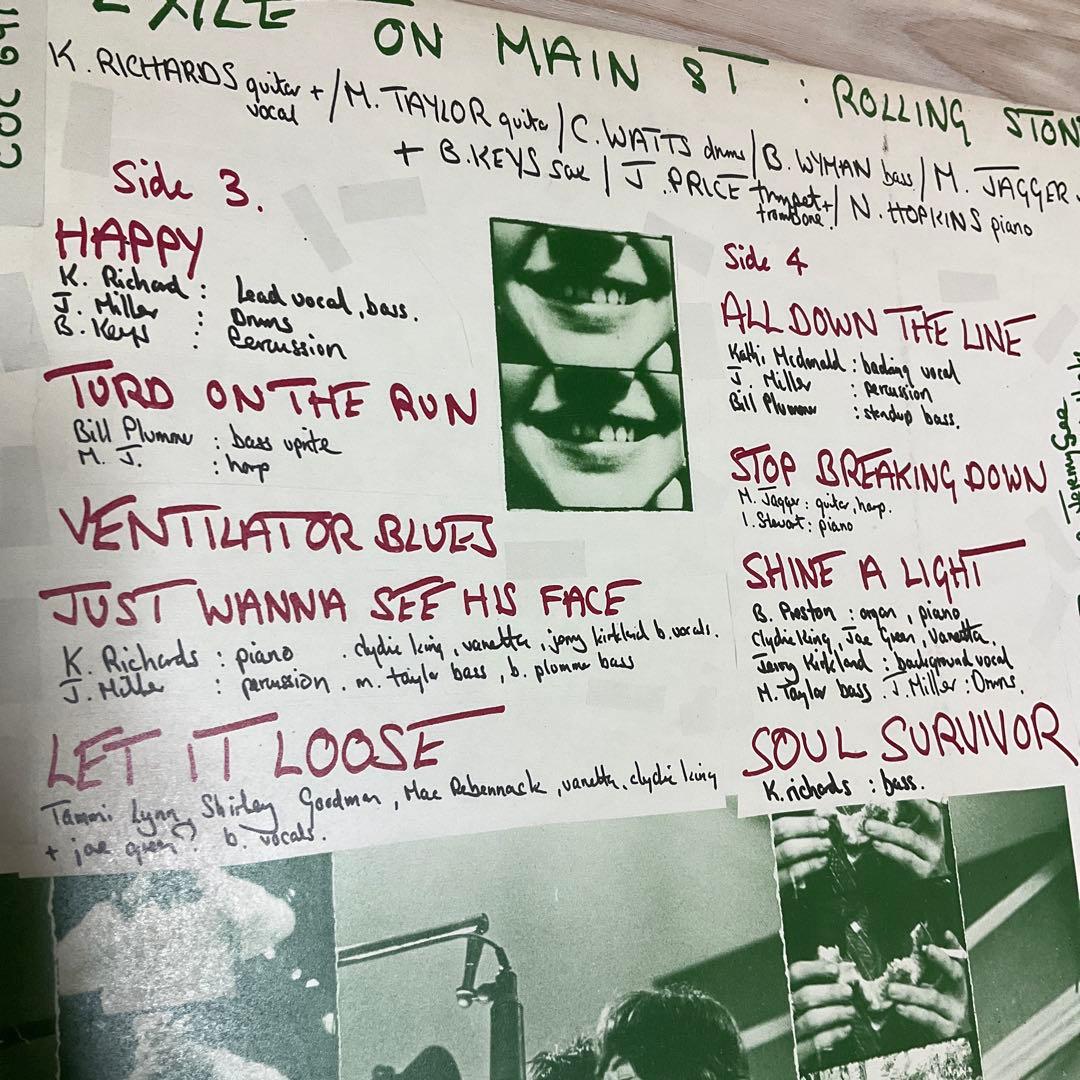 EXILE ON MAIN ST : ROLLING STON
COC 691
K. RICHARDS guitar + vocal / M. TAYLOR guitar / C. WATTS drums / B. WYMAN bass / M. JAGGER
+ B. KEYS sax / J. PRICE trumpet + trombone. / N. HOPKINS piano
Side 3.
HAPPY
K. Richard : Lead vocal, bass.
J. Miller : Drums
B. Keys : Percussion
TURD ON THE RUN
Bill Plummer : bass uprite
M. J. : harp
VENTILATOR BLUES
JUST WANNA SEE HIS FACE
K. Richards : piano . clydie king, vanetta, jerry kirkland b. vocals.
J. Miller : percussion . m. taylor bass, b. plummer bass
LET IT LOOSE
Tammi Lynn, Shirley Goodman, Mac Rebennack, vanetta, clydie king
+ joe green? b. vocals.
Side 4
ALL DOWN THE LINE
Kathi Mcdonald : backing vocal
J. Miller : percussion
Bill Plummer : standup bass.
STOP BREAKING DOWN
M. Jagger : guitar, harp.
I. Stewart : piano
SHINE A LIGHT
B. Preston : organ, piano
Clydie king, Joe Green, Vanetta.
Jerry Kirkland : background vocal
M. Taylor bass . J. Miller : Drums.
SOUL SURVIVOR
K. richards : bass.